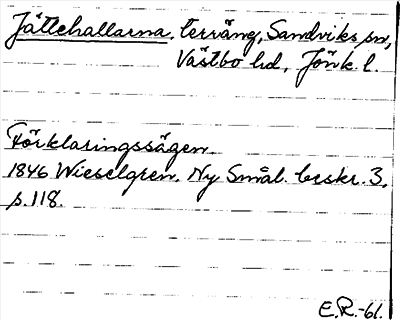 Jättehallarna, terräng, Sandviks sn,
Västbo hd, Jönk. l.
Förklaringssägen.
1846 Wieselgren. Ny Smål. beskr. 3,
s. 118.
E.R.-61.